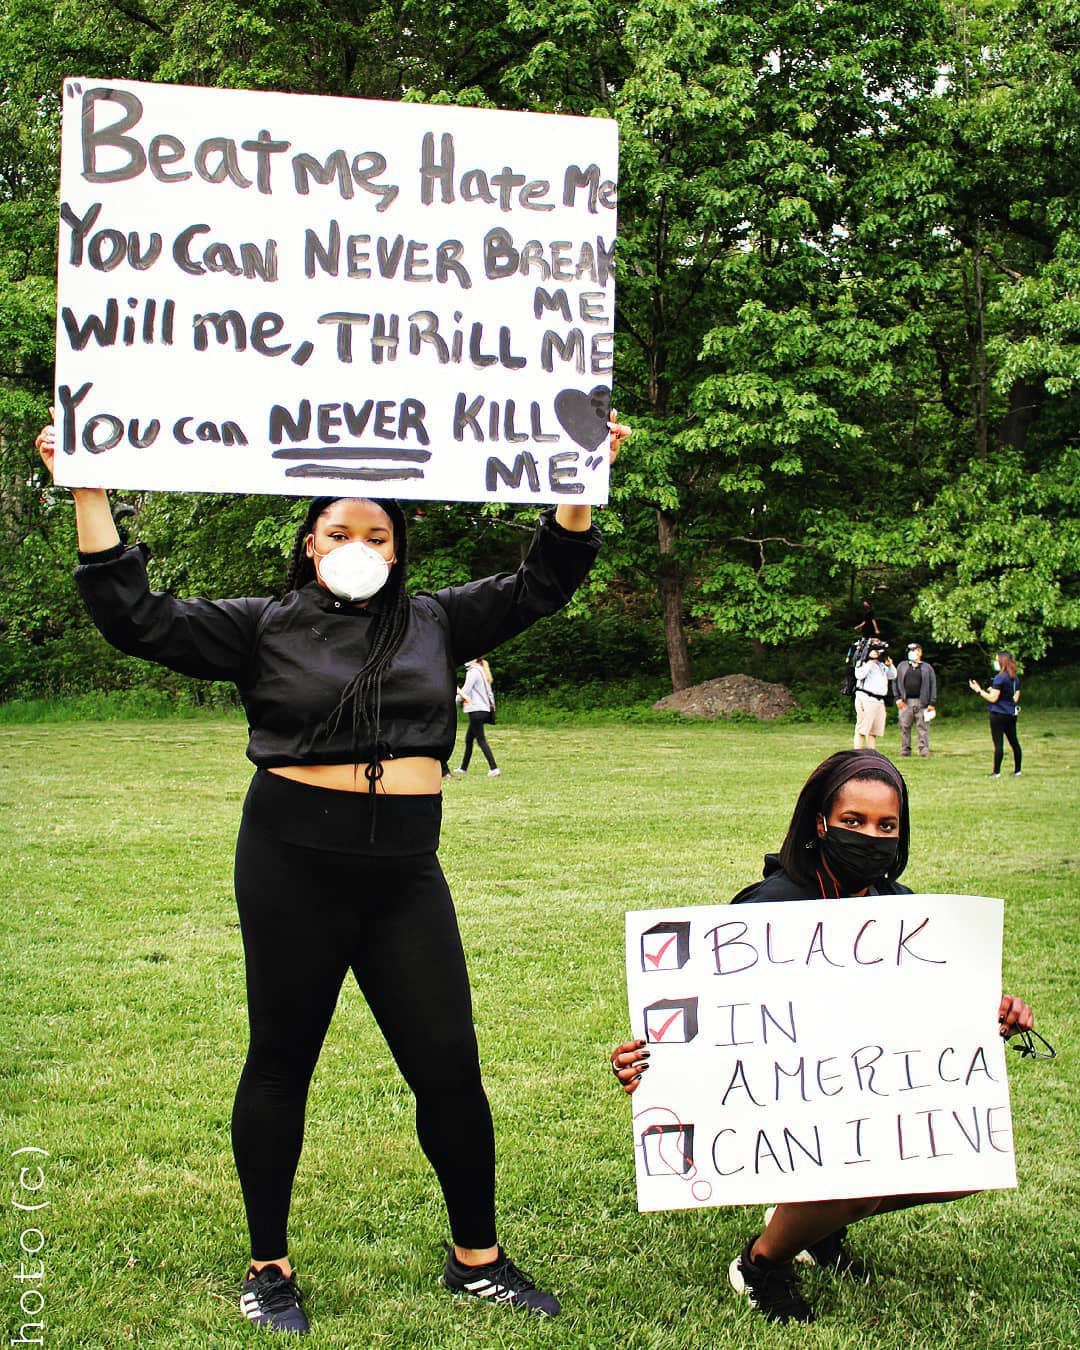 "Beat me, Hate Me
You Can NEVER BREAK
ME
Will me, THRiLL ME
You can NEVER KILL
ME"
BLACK
IN
AMERICA
CAN I LIVE
?
hoto (c)